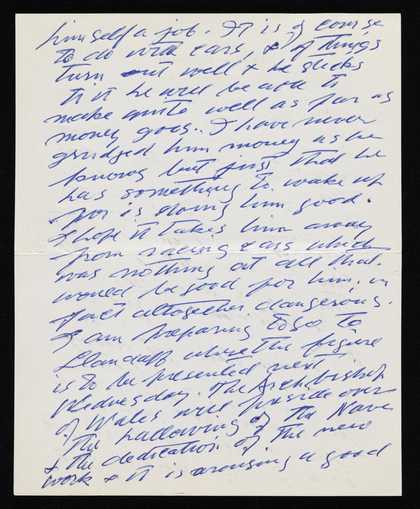 himself a job. It is of course
to do with cars, & if things
turn out well & he sticks
to it he will be able to
make quite well as far as
money goes.. I have never
grudged him money as he
knows but just that he
has something to wake up
for is doing him good.
I hope it takes him away
from racing cars which
was nothing at all that
would be good for him; in
fact altogether dangerous.
I am preparing to go to
Llandaff where the figure
is to be presented next
Wednesday. The Archbishop
of Wales will preside over
the hallowing of the Nave
& the dedication of the new
work & it is arousing a good